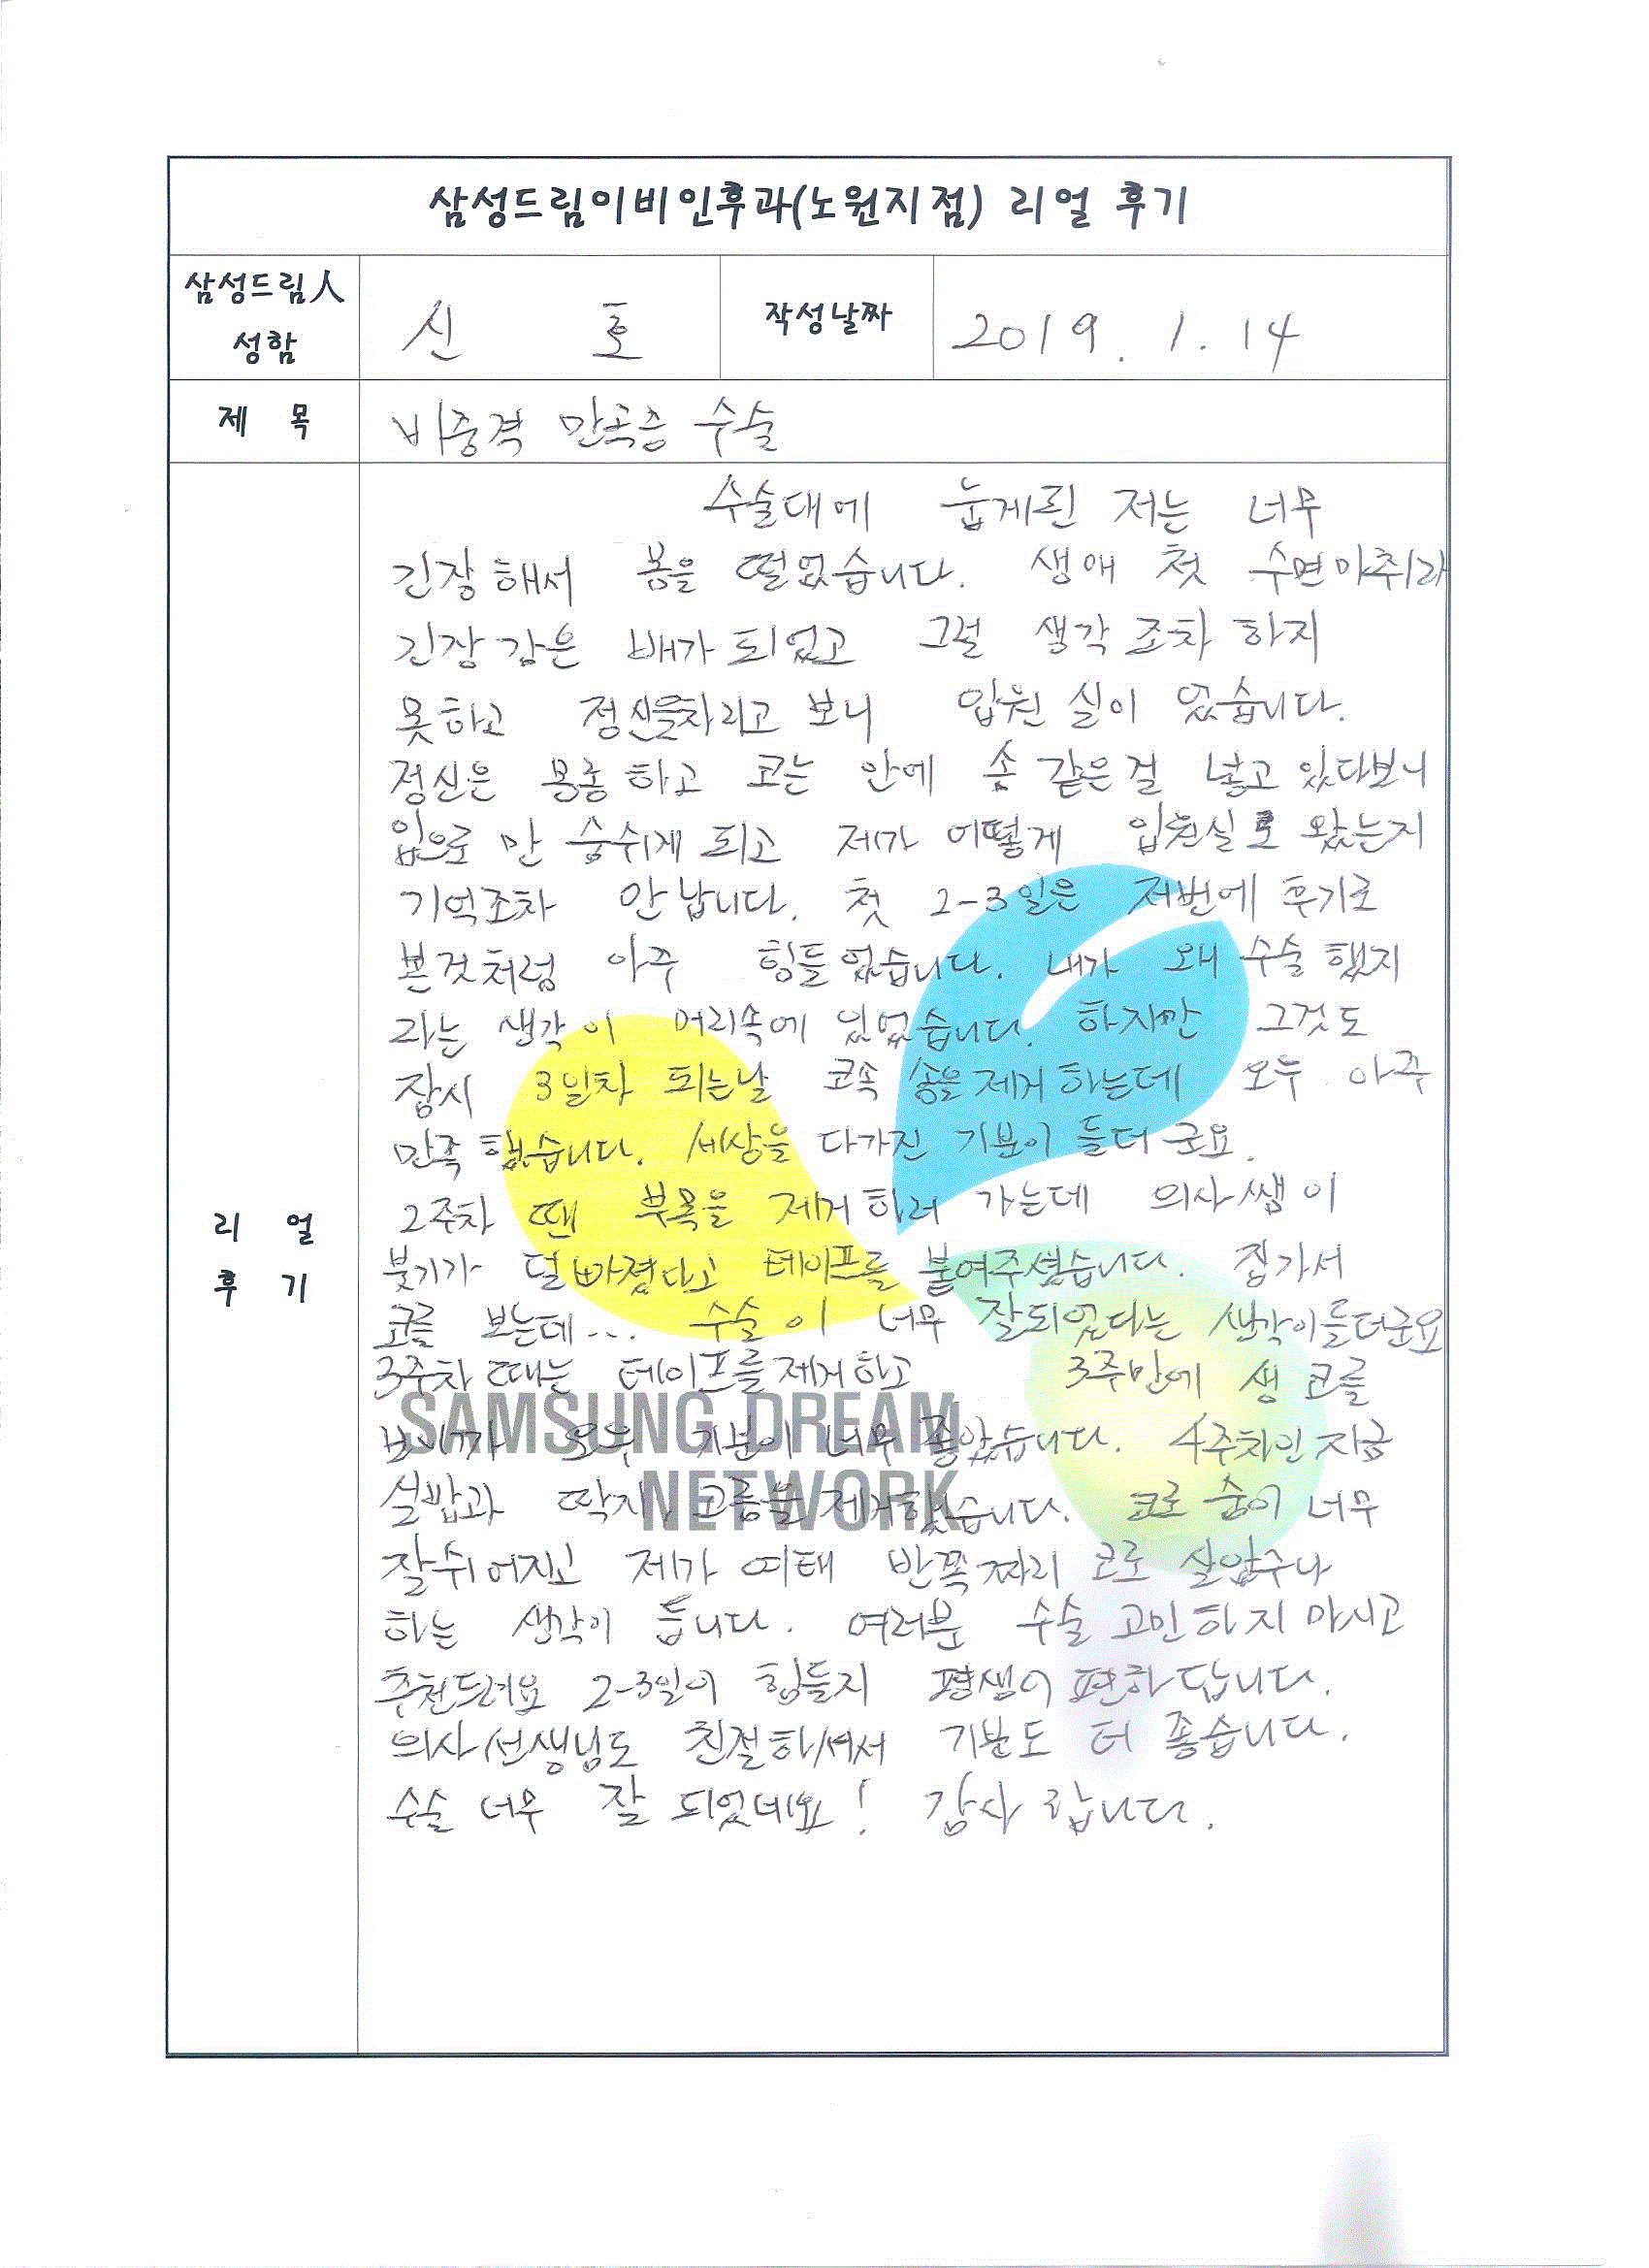 삼성드림이비인후과(노원지점) 리얼 후기
삼성드림人 성함
신 호
작성날짜
2019. 1. 14
제 목
비중격 만곡증 수술
리 얼 후 기
수술대에 눕게된 저는 너무
긴장해서 몸을 떨었습니다. 생애 첫 수면마취라
긴장감은 배가 되었고 그럴 생각조차 하지
못하고 정신을차리고 보니 입원실이 었습니다.
정신은 몽롱하고 코는 안에 솜 같은걸 넣고 있다보니
입으로 만 숨쉬게 되고 제가 어떻게 입원실로 왔는지
기억조차 안납니다. 첫 2-3일은 저번에 후기로
본것처럼 아주 힘들었습니다. 내가 왜 수술했지
라는 생각이 머리속에 있었습니다. 하지만 그것도
잠시 3일차 되는날 코속 솜을제거하는데 오우 아주
만족했습니다. 세상을 다가진 기분이 들더군요.
2주차 땐 부목을 제거하러 가는데 의사쌤이
붓기가 덜빠졌다고 테이프를 붙여주셨습니다. 집가서
코를 보는데... 수술이 너무 잘되었다는 생각이들더군요
3주차 때는 테이프를제거하고 3주만에 생 코를
보니까 오우 기분이 너무 좋았습니다. 4주차인 지금
실밥과 딱지, 고름을 제거했습니다. 코로 숨이 너무
잘쉬어지고 제가 여태 반쪽짜리 코로 살았구나
하는 생각이 듭니다. 여러분 수술 고민하지 마시고
추천드려요 2-3일이 힘들지 평생이 편하답니다.
의사선생님도 친절하셔서 기분도 더 좋습니다.
수술 너무 잘 되었네요! 감사합니다.
SAMSUNG DREAM
NETWORK